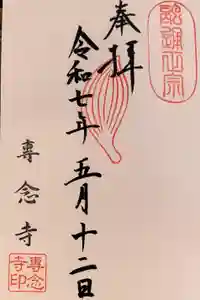 融通宗
奉拝
令和七年五月十二日
専念寺
專念寺印